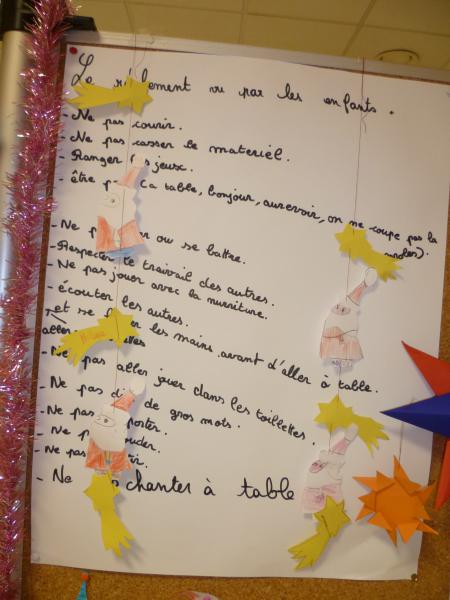 Le règlement vu par les enfants.
- Ne pas courir.
- Ne pas casser le materiel.
- Ranger les jeux.
- être à table, bonjour, aurevoir, on ne coupe pas la
- Ne ou se battre.
- Respecter le travail des autres.
- Ne pas jouer avec la nurriture.
- écouter les autres.
et se les mains avant d'aller à table.
aller
- Ne pas aller jouer dans les toillettes.
- Ne pas de gros mots.
- Ne pas
- Ne
- Ne pas
- Ne chanter à table